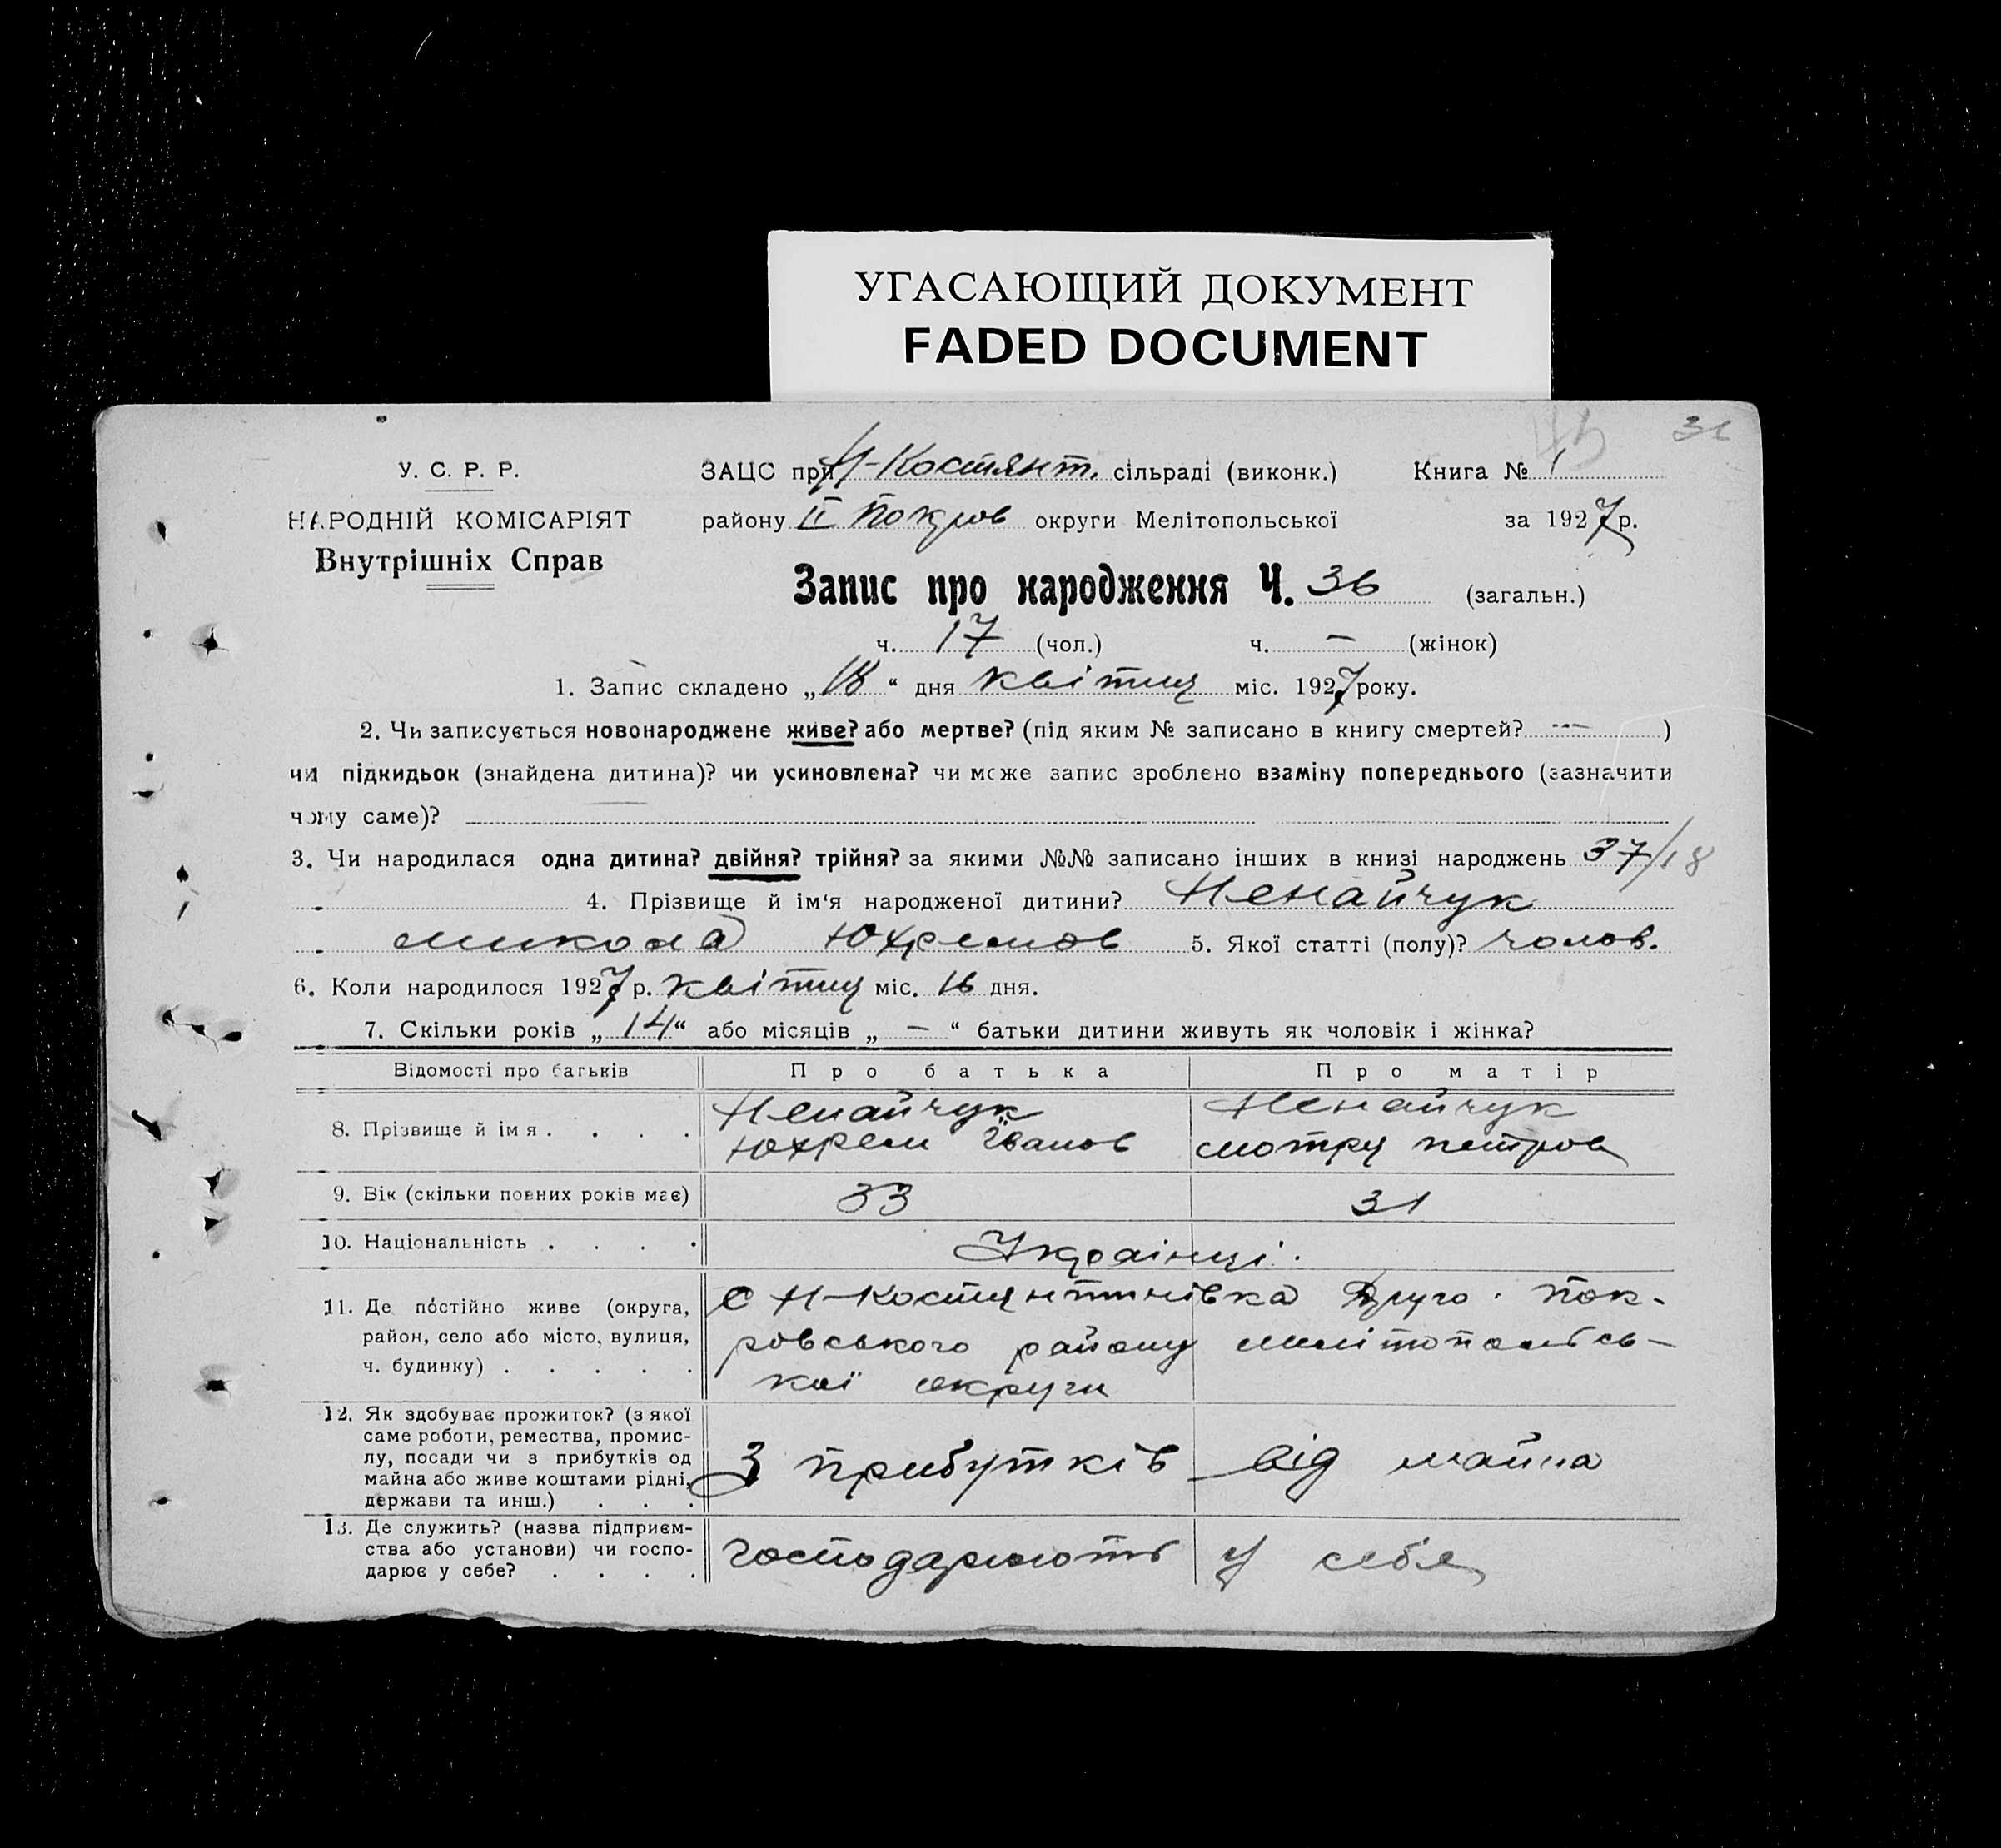 УГАСАЮЩИЙ ДОКУМЕНТ
FADED DOCUMENT
31
У. С. Р. Р.
НАРОДНІЙ КОМІСАРІЯТ
Внутрішніх Справ
ЗАЦС при Н-Костянт. сільраді (виконк.) Книга № 1
району II Покров округи Мелітопольської за 1927 р.
Запис про народження Ч. 36 (загальн.)
ч. 17 (чол.) ч. — (жінок)
1. Запис складено „18“ дня квітня міс. 1927 року.
2. Чи записується новонароджене живе? або мертве? (під яким № записано в книгу смертей? — )
чи підкидьок (знайдена дитина)? чи усиновлена? чи може запис зроблено взаміну попереднього (зазначити
чому саме)?
3. Чи народилася одна дитина? двійня? трійня? за якими №№ записано інших в книзі народжень 37/18
4. Прізвище й ім‘я народженої дитини? Ненайчук
микола Юхремов 5. Якої статті (полу)? чолов.
6. Коли народилося 1927 р. квітня міс. 16 дня.
7. Скільки років „14“ або місяців „—“ батьки дитини живуть як чоловік і жінка?
Відомості про батьків Про батька Про матір
8. Прізвище й імя . . . . Ненайчук Юхрем Іванов Ненайчук мотря петров
9. Вік (скільки повних років має) 33 31
10. Національність . . . . Украінці.
11. Де постійно живе (округа, район, село або місто, вулиця, ч. будинку) . . . . .
с Н-Костянтинівка Друго Пок-
ровського району мелітопольсь-
кої округи
12. Як здобуває прожиток? (з якої саме роботи, ремества, промислу, посади чи з прибутків од майна або живе коштами рідні, держави та инш.) . . .
З прибутків від майна
13. Де служить? (назва підприємства або установи) чи господарює у себе? . . . .
господарюють у себе